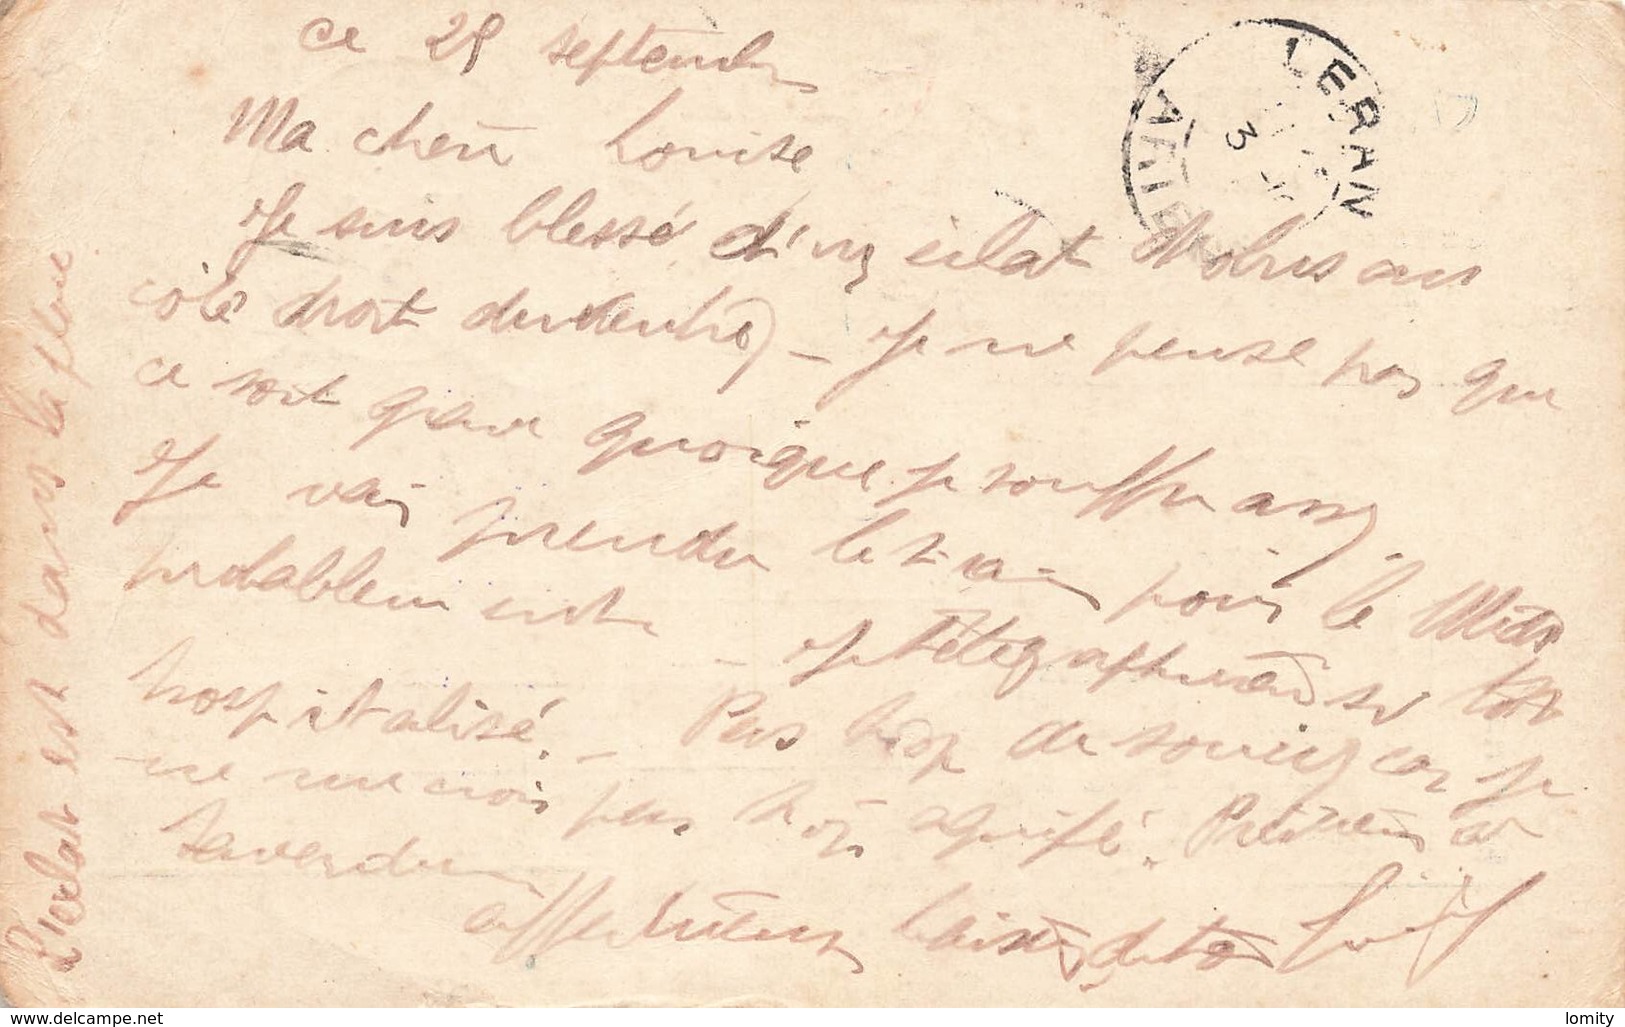 ce 29 septembre
Ma chère Louise
Je suis blessé d'un éclat d'obus au
côté droit du ventre) - Je ne pense pas que
ce soit grave quoique je souffre assez
Je vais prendre le train pour le Midi
probablement - je télégraphierai si tôt
hospitalisé. - Pas trop de soucis car je
ne me crois pas trop amifé. Préviens à
Saverdun
affectueux baisers de ton
L'éclat est dans la plaie
LERAN
ARIEGE
3
www.delcampe.net
lomity